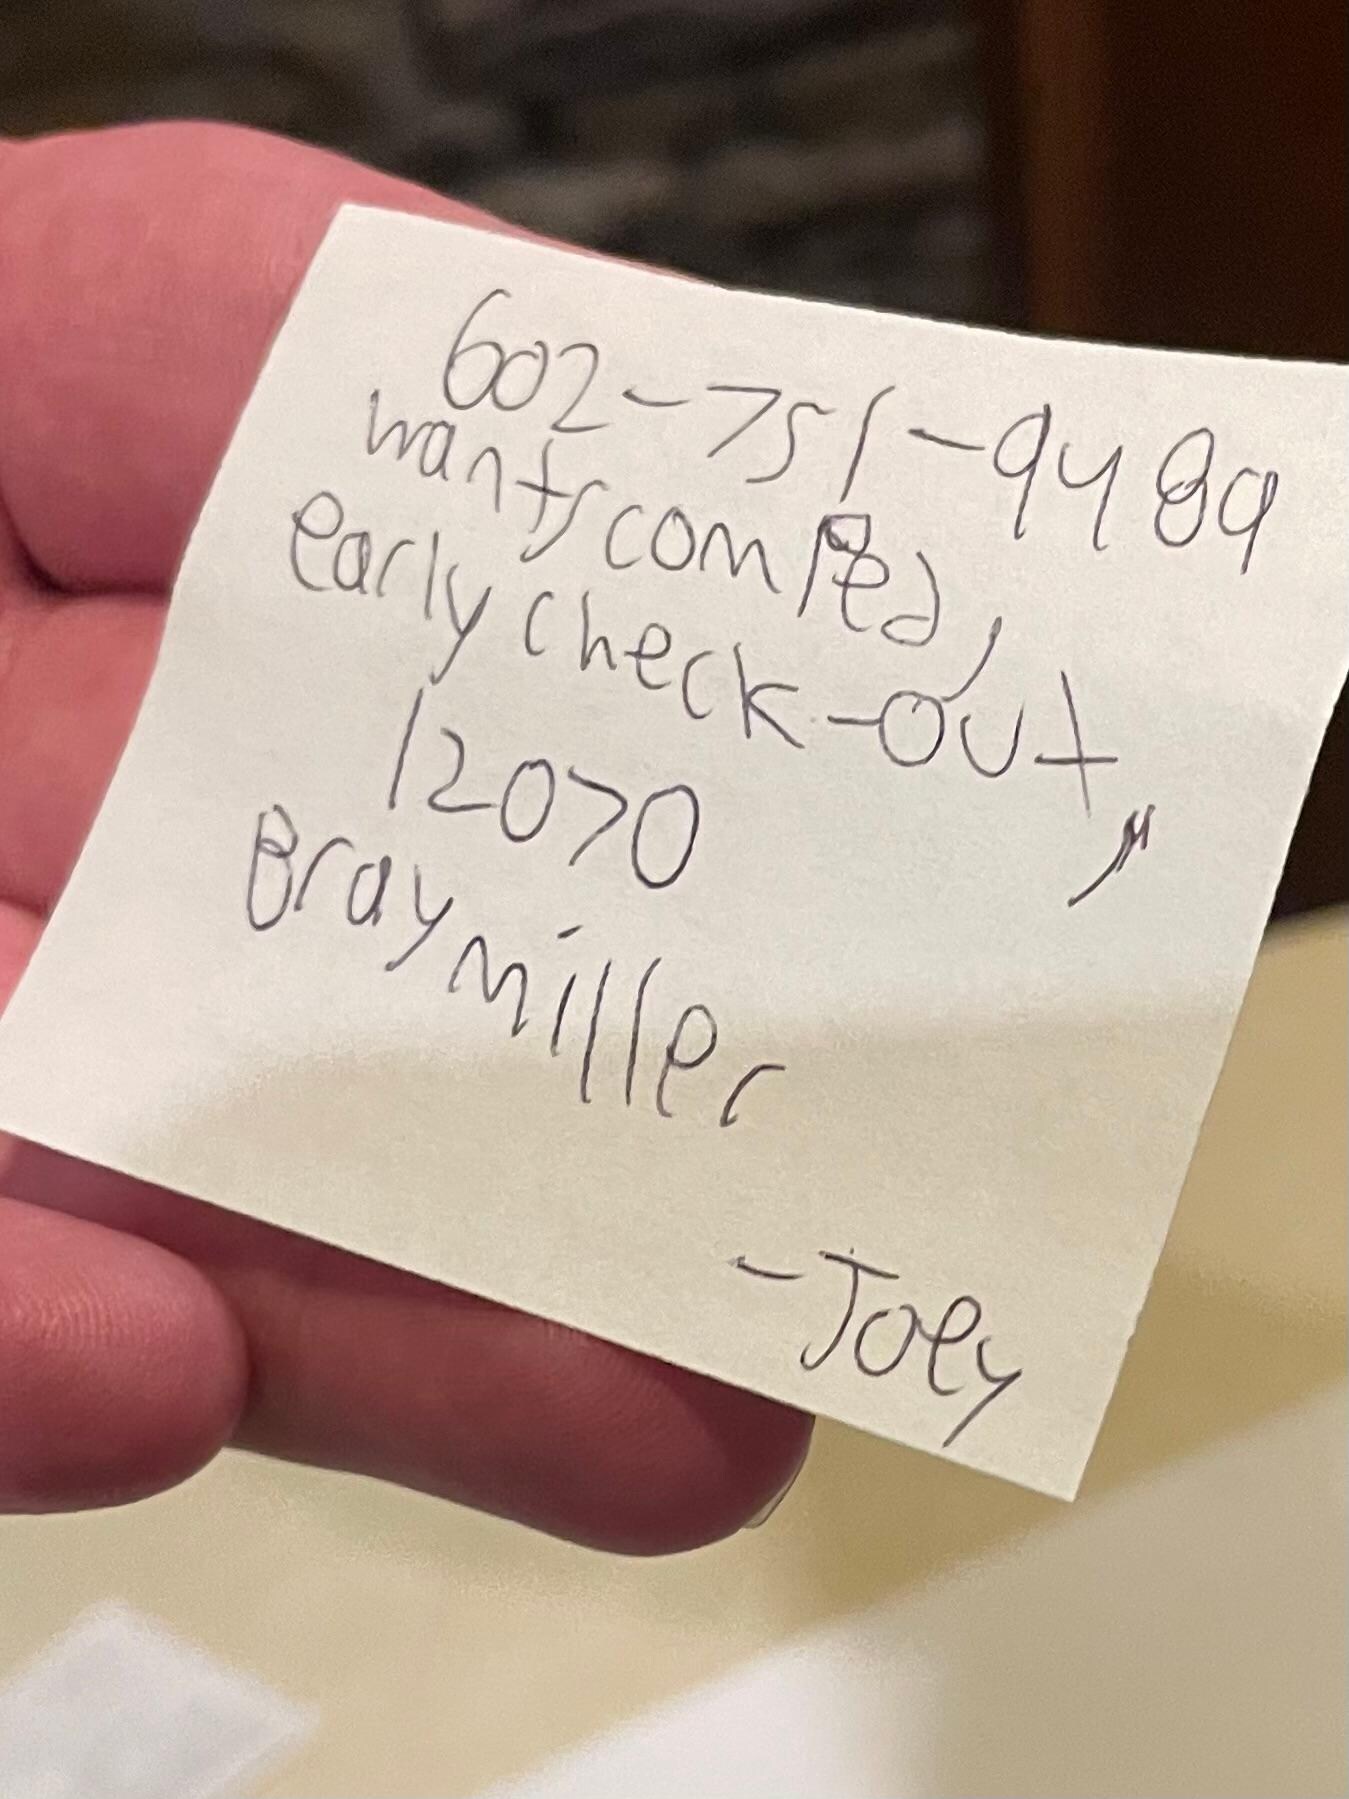 602-751-9489
wants comped,
early check-out,
12070
Bray miller
-Joey